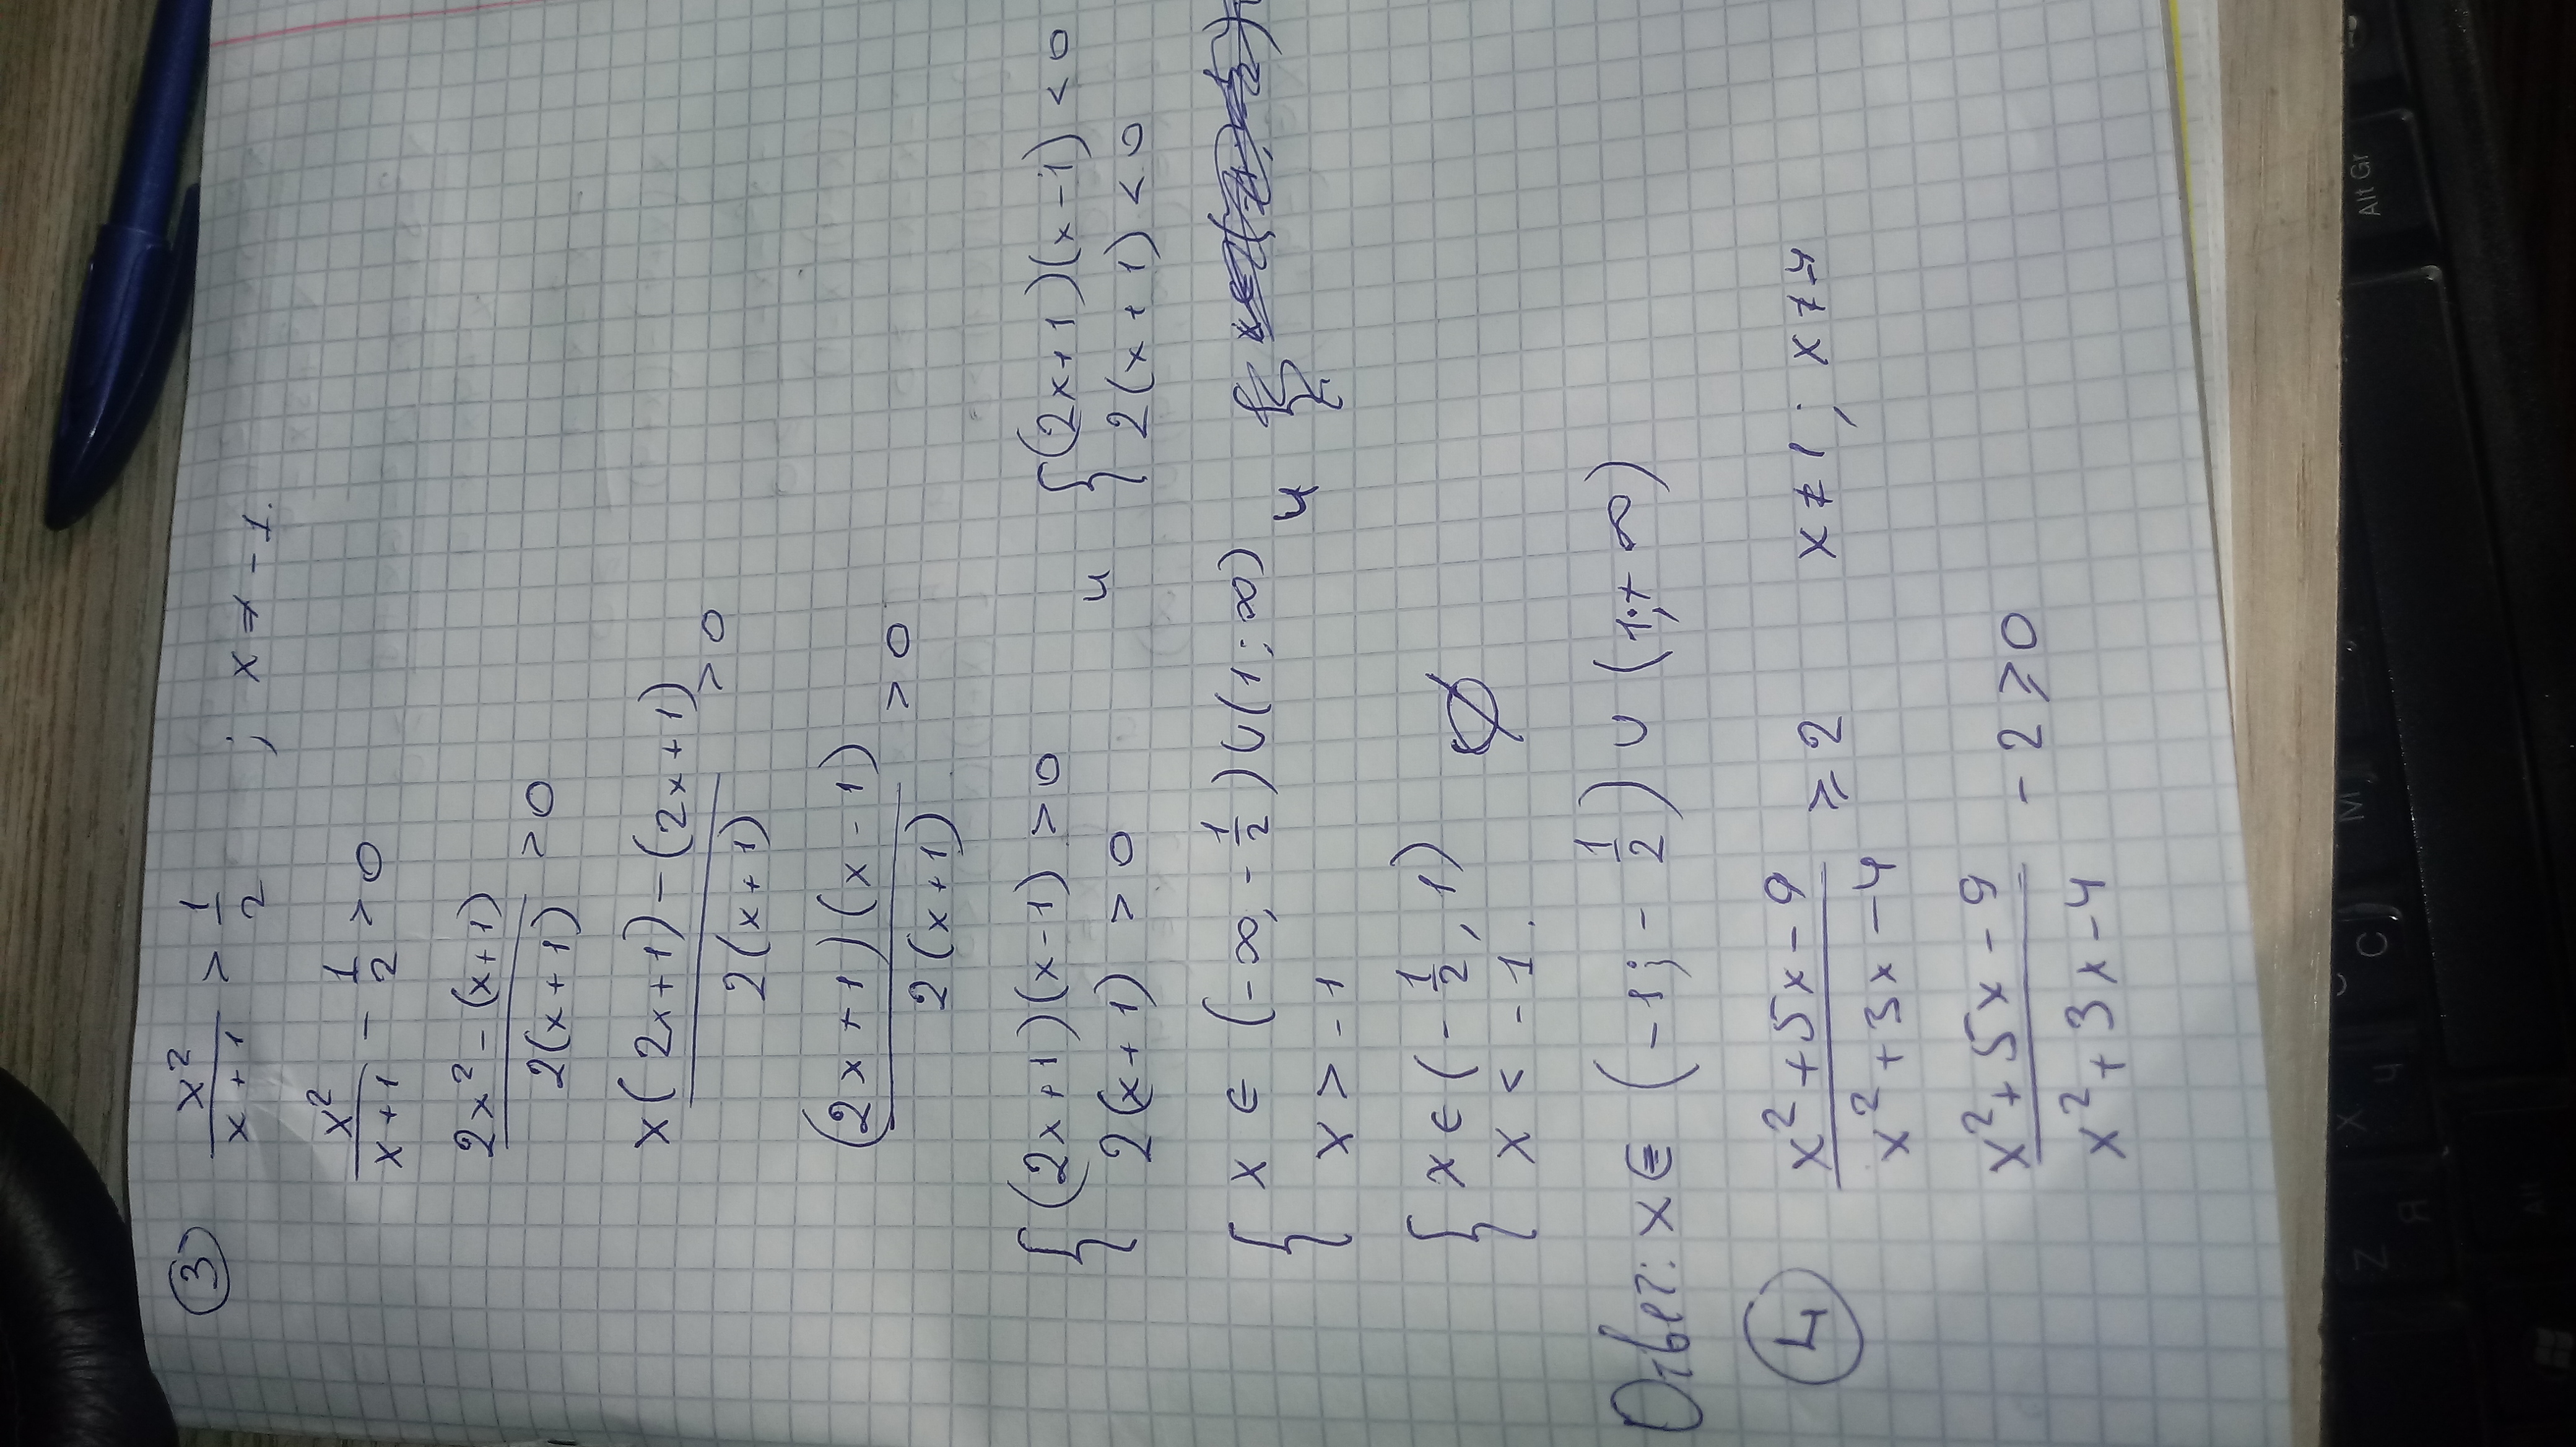 ③ x²/(x+1) > 1/2 ; x ≠ -1.
x²/(x+1) - 1/2 > 0
(2x² - (x+1))/(2(x+1)) > 0
(x(2x+1) - (2x+1))/(2(x+1)) > 0
((2x+1)(x-1))/(2(x+1)) > 0
{ (2x+1)(x-1) > 0 и { (2x+1)(x-1) < 0
2(x+1) > 0 2(x+1) < 0
{ x ∈ (-∞; -1/2) ∪ (1; ∞) и
x > -1
{ x ∈ (-1/2, 1) ∅
x < -1.
Ответ: x ∈ (-1; -1/2) ∪ (1; +∞)
④ (x²+5x-9)/(x²+3x-4) ⩾ 2 x ≠ 1; x ≠ -4
(x²+5x-9)/(x²+3x-4) - 2 ⩾ 0
Alt Gr
Z Я X Ч C М
Alt